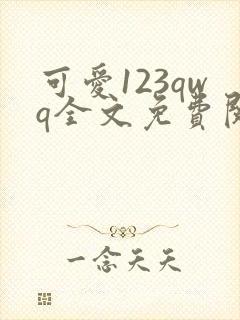 可愛123qw
q全文免費
一念天天